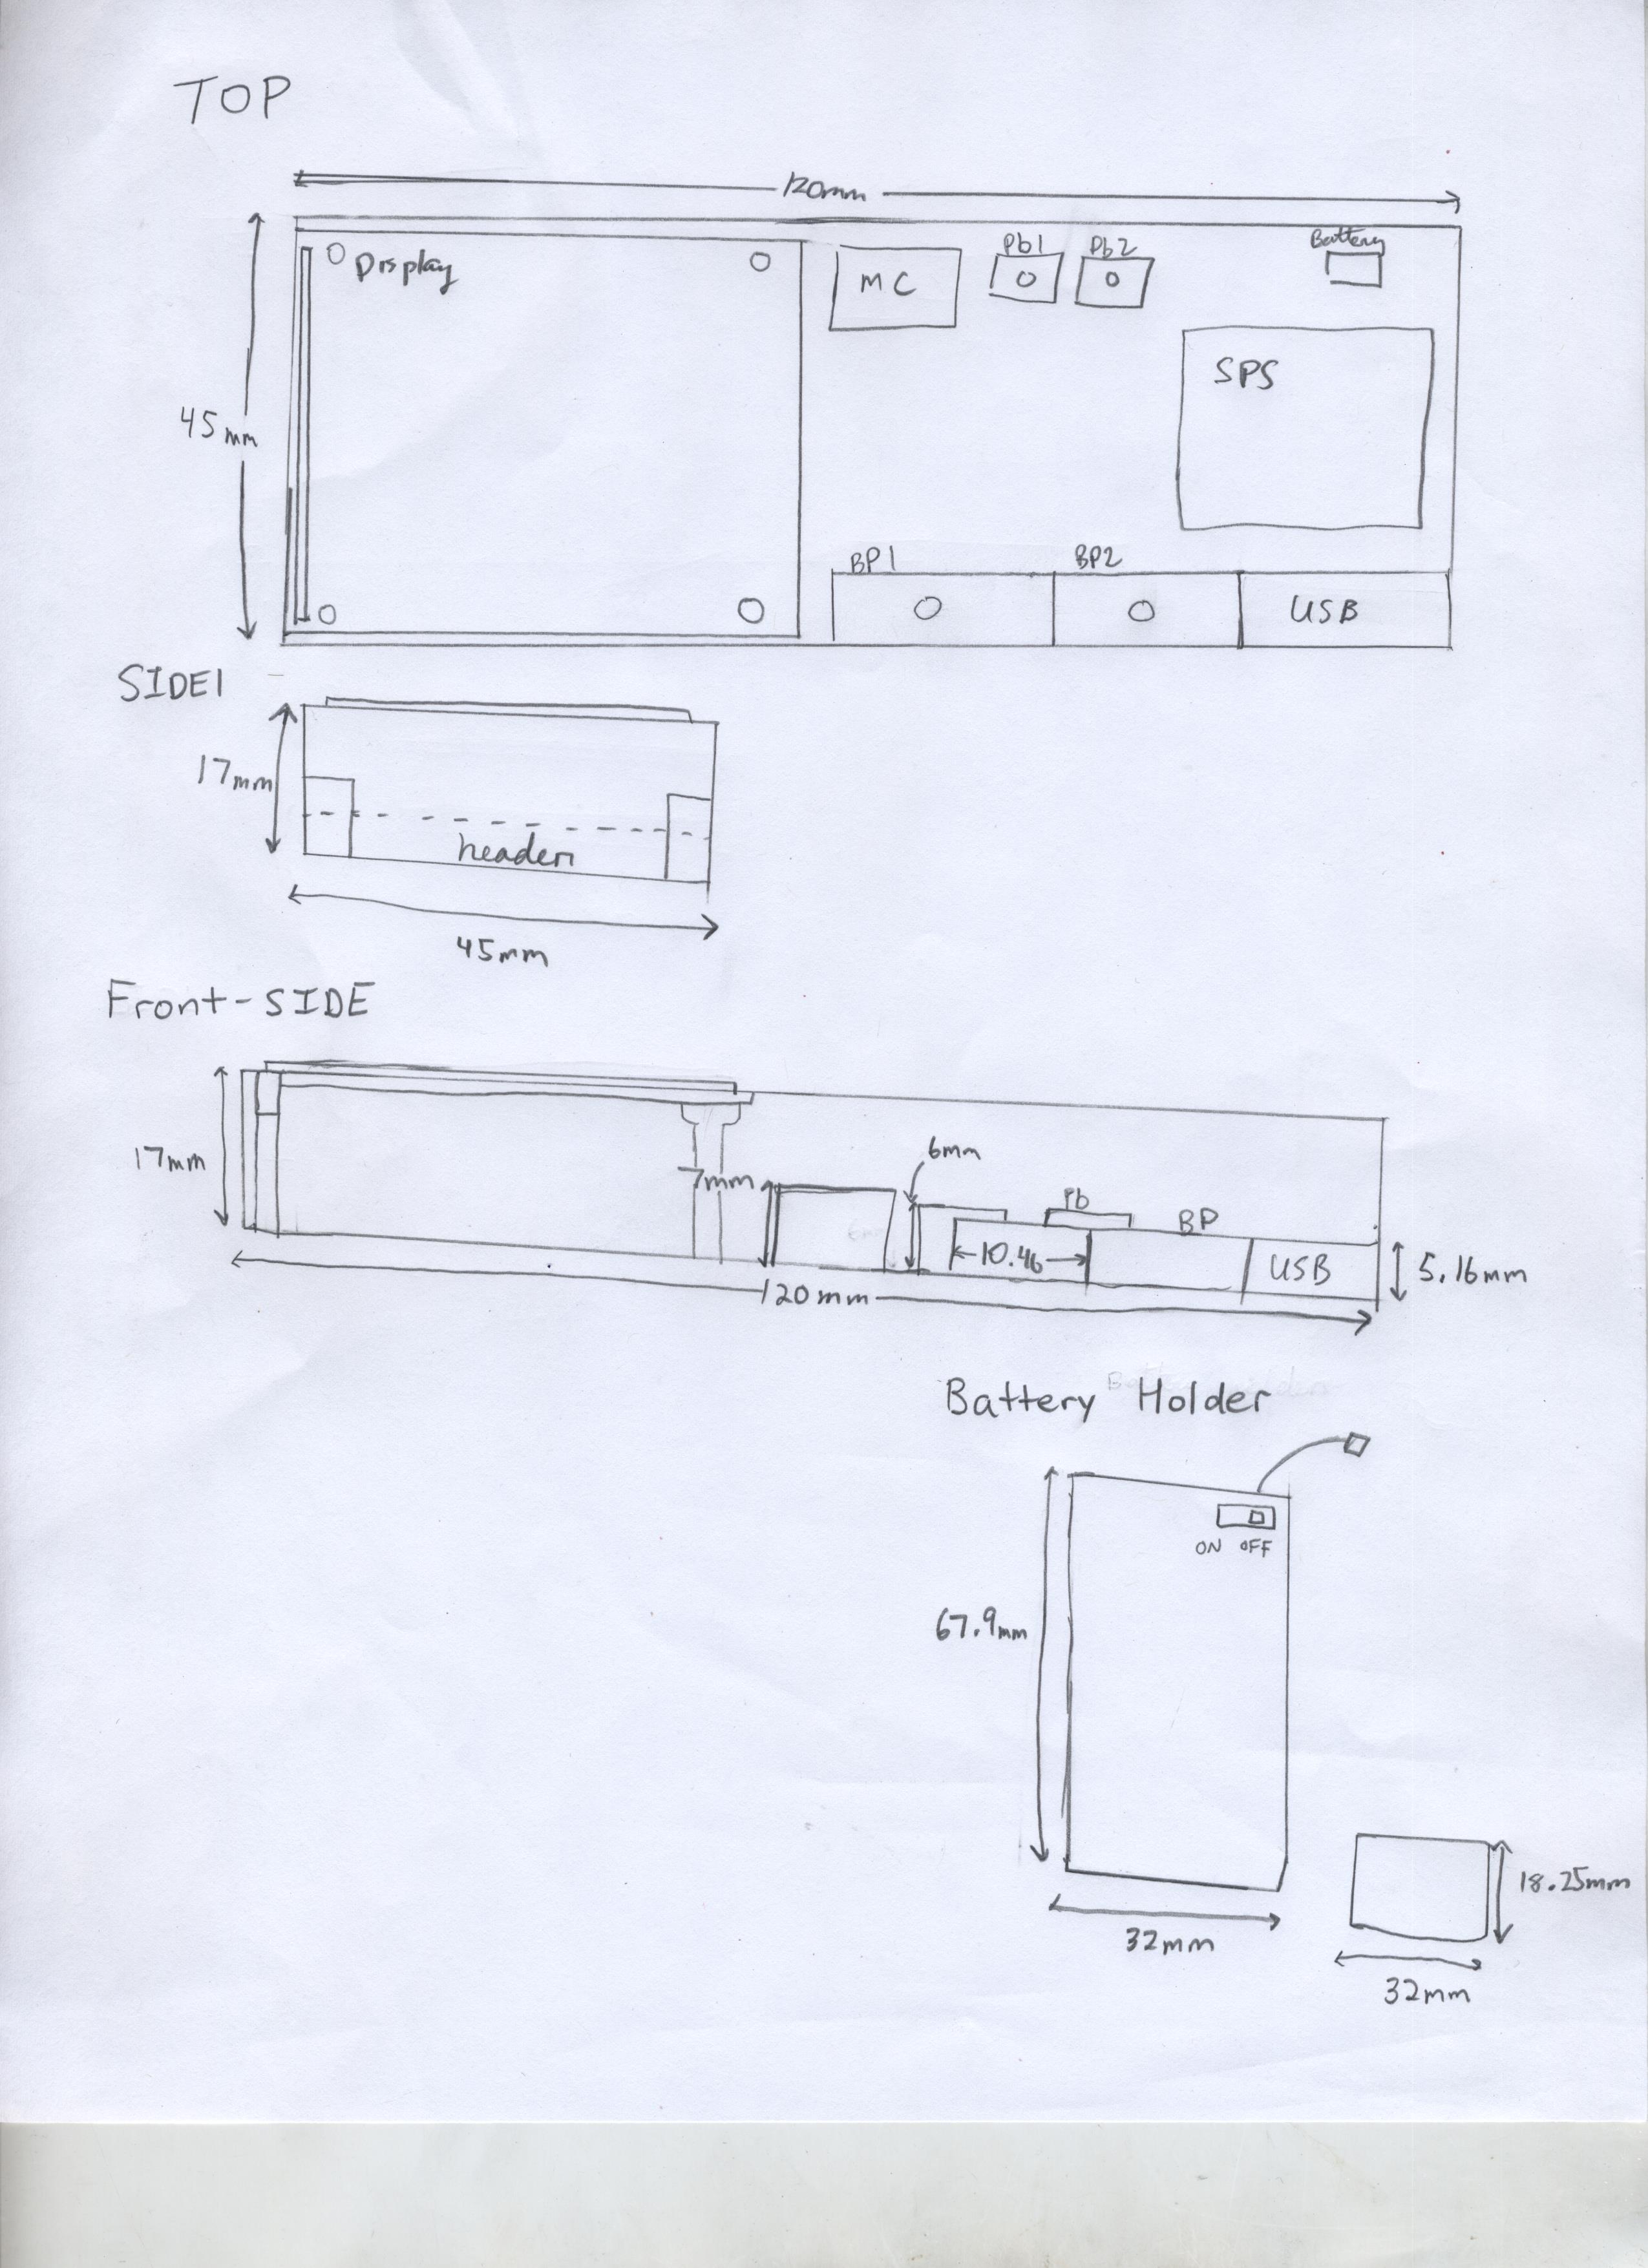 TOP
120mm
Display
MC
Pb1
Pb2
Battery
45mm
SPS
BP1
BP2
USB
SIDE1
17mm
header
45mm
Front-SIDE
17mm
7mm
6mm
Pb
BP
10.46
USB
5.16mm
120mm
Battery Holder
ON OFF
67.9mm
32mm
18.25mm
32mm